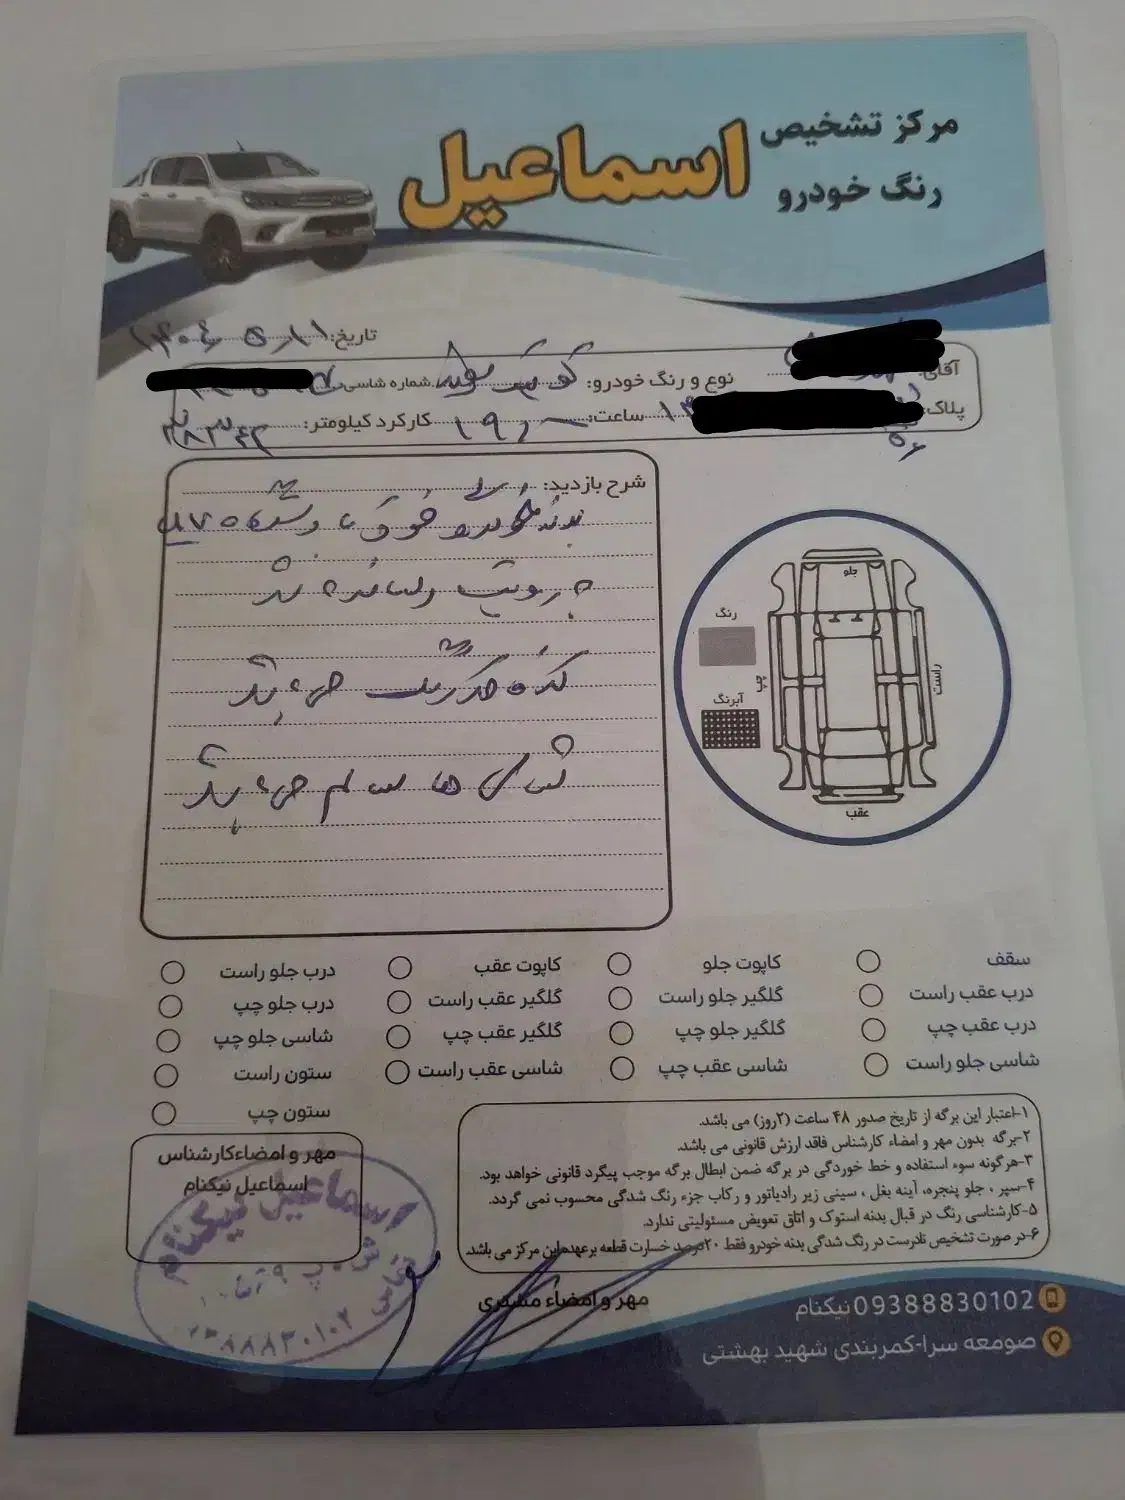 مرکز تشخیص
رنگ خودرو
اسماعیل
تاریخ: ۱۴۰۴/۵/۱۱
آقای:
نوع و رنگ خودرو: کوییک سفید
شماره شاسی:
پلاک:
ساعت: ۱۹:۰۰
کارکرد کیلومتر:
شرح بازدید:
بدنه خودرو فوق با دستگاه
به رویت رسانده شد
شاسی ها سالم می باشد
جلو
رنگ
آبرنگ
چپ
راست
عقب
سقف
کاپوت جلو
کاپوت عقب
درب جلو راست
درب عقب راست
گلگیر جلو راست
گلگیر عقب راست
درب جلو چپ
درب عقب چپ
گلگیر جلو چپ
گلگیر عقب چپ
شاسی جلو چپ
شاسی جلو راست
شاسی عقب چپ
شاسی عقب راست
ستون راست
ستون چپ
۱-اعتبار این برگه از تاریخ صدور ۴۸ ساعت (۲روز) می باشد.
۲-برگه بدون مهر و امضاء کارشناس فاقد ارزش قانونی می باشد.
۳-هرگونه سوء استفاده و خط خوردگی در برگه ضمن ابطال برگه موجب پیگرد قانونی خواهد بود.
۴-سپر ، جلو پنجره، آینه بغل ، سینی زیر رادیاتور و رکاب جزء رنگ شدگی محسوب نمی گردد.
۵-کارشناسی رنگ در قبال بدنه استوک و اتاق تعویض مسئولیتی ندارد.
۶-در صورت تشخیص نادرست در رنگ شدگی بدنه خودرو فقط ۲۰درصد خسارت قطعه برعهده این مرکز می باشد.
مهر و امضاءکارشناس
اسماعیل نیکنام
اسماعیل نیکنام
مهر و امضاء مشتری
09388830102 نیکنام
صومعه سرا-کمربندی شهید بهشتی